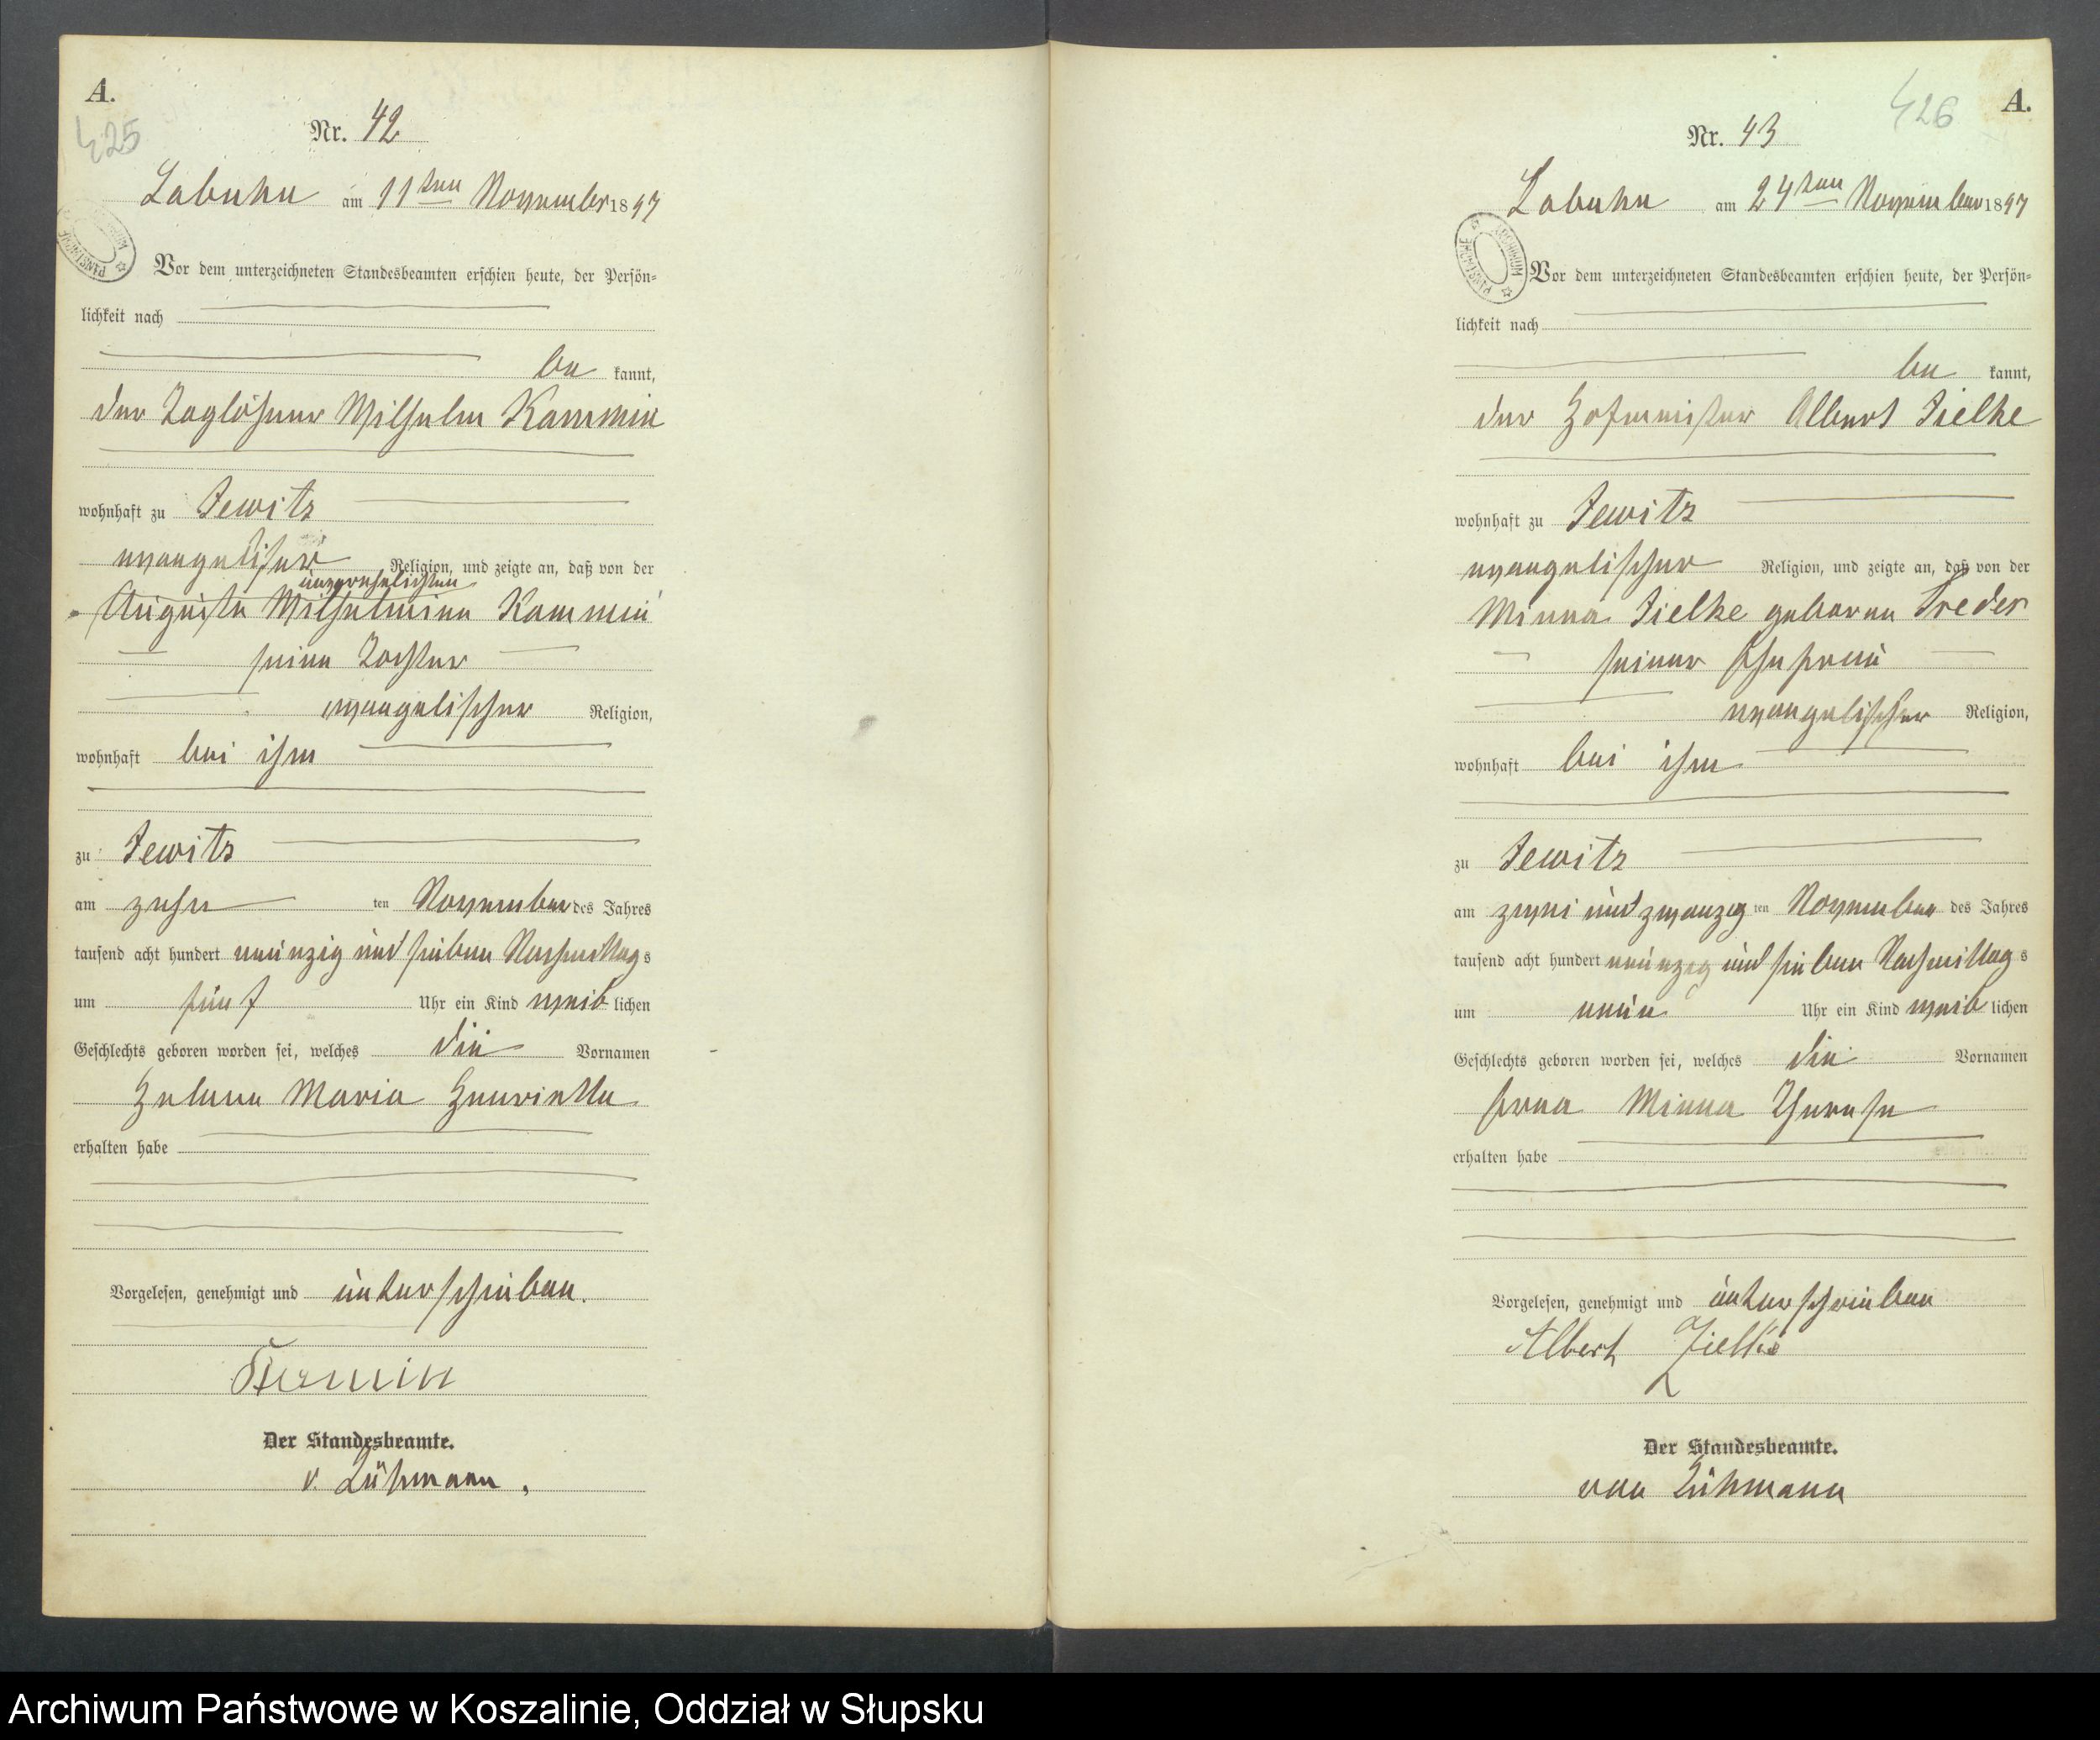 A.
425
Nr. 42
Labuhn am 11ten November 1897
Vor dem unterzeichneten Standesbeamten erschien heute, der Persön=
lichkeit nach
be kannt,
der Taglöhner Wilhelm Kammin
wohnhaft zu Jewitz
evangelischer Religion, und zeigte an, daß von der
unverehelichten
Auguste Wilhelmine Kammin
seine Tochter
evangelischer Religion,
wohnhaft bei ihm
zu Jewitz
am zehn ten November des Jahres
tausend acht hundert neunzig und sieben Nachmittags
um fünf Uhr ein Kind weiblichen
Geschlechts geboren worden sei, welches die Vornamen
Helene Maria Henriette
erhalten habe
Vorgelesen, genehmigt und unterschieben.
Kamin
Der Standesbeamte.
v. Lühmann.
A.
426
Nr. 43
Labuhn am 24ten November 1897
Vor dem unterzeichneten Standesbeamten erschien heute, der Persön=
lichkeit nach
be kannt,
der Hofmeister Albert Zielke
wohnhaft zu Jewitz
evangelischer Religion, und zeigte an, daß von der
Minna Zielke geborne Treder
seiner Ehefrau
evangelischer Religion,
wohnhaft bei ihm
zu Jewitz
am zwei und zwanzig ten November des Jahres
tausend acht hundert neunzig und sieben Nachmittags
um neun Uhr ein Kind weiblichen
Geschlechts geboren worden sei, welches die Vornamen
Erna Minna Therese
erhalten habe
Vorgelesen, genehmigt und unterschrieben
Albert Zielke
Der Standesbeamte.
von Lühmann
Archiwum Państwowe w Koszalinie, Oddział w Słupsku